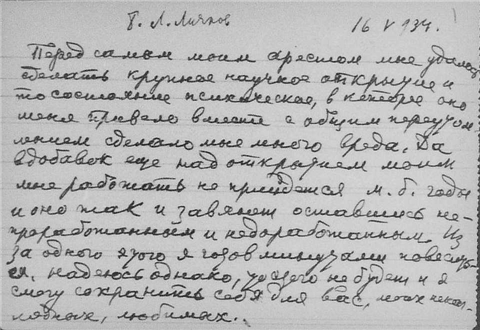 Б. Л. Личков 16 V 934.
Перед самым моим арестом мне удалось
сделать крупное научное открытие и
то состояние психическое, в которое оно
меня привело вместе с общим переутом
лением сделало мне много вреда. Да
вдобавок еще над открытием моим
мне работать не придется м. б. годы
и оно так и завянет оставшись не-
проработанным и недоработанным. Из
за одного этого я готов минутами повесить
ся. Надеюсь однако, что этого не будет и я
смогу сохранить себя для вас, моих ненаг-
лядных, любимых..